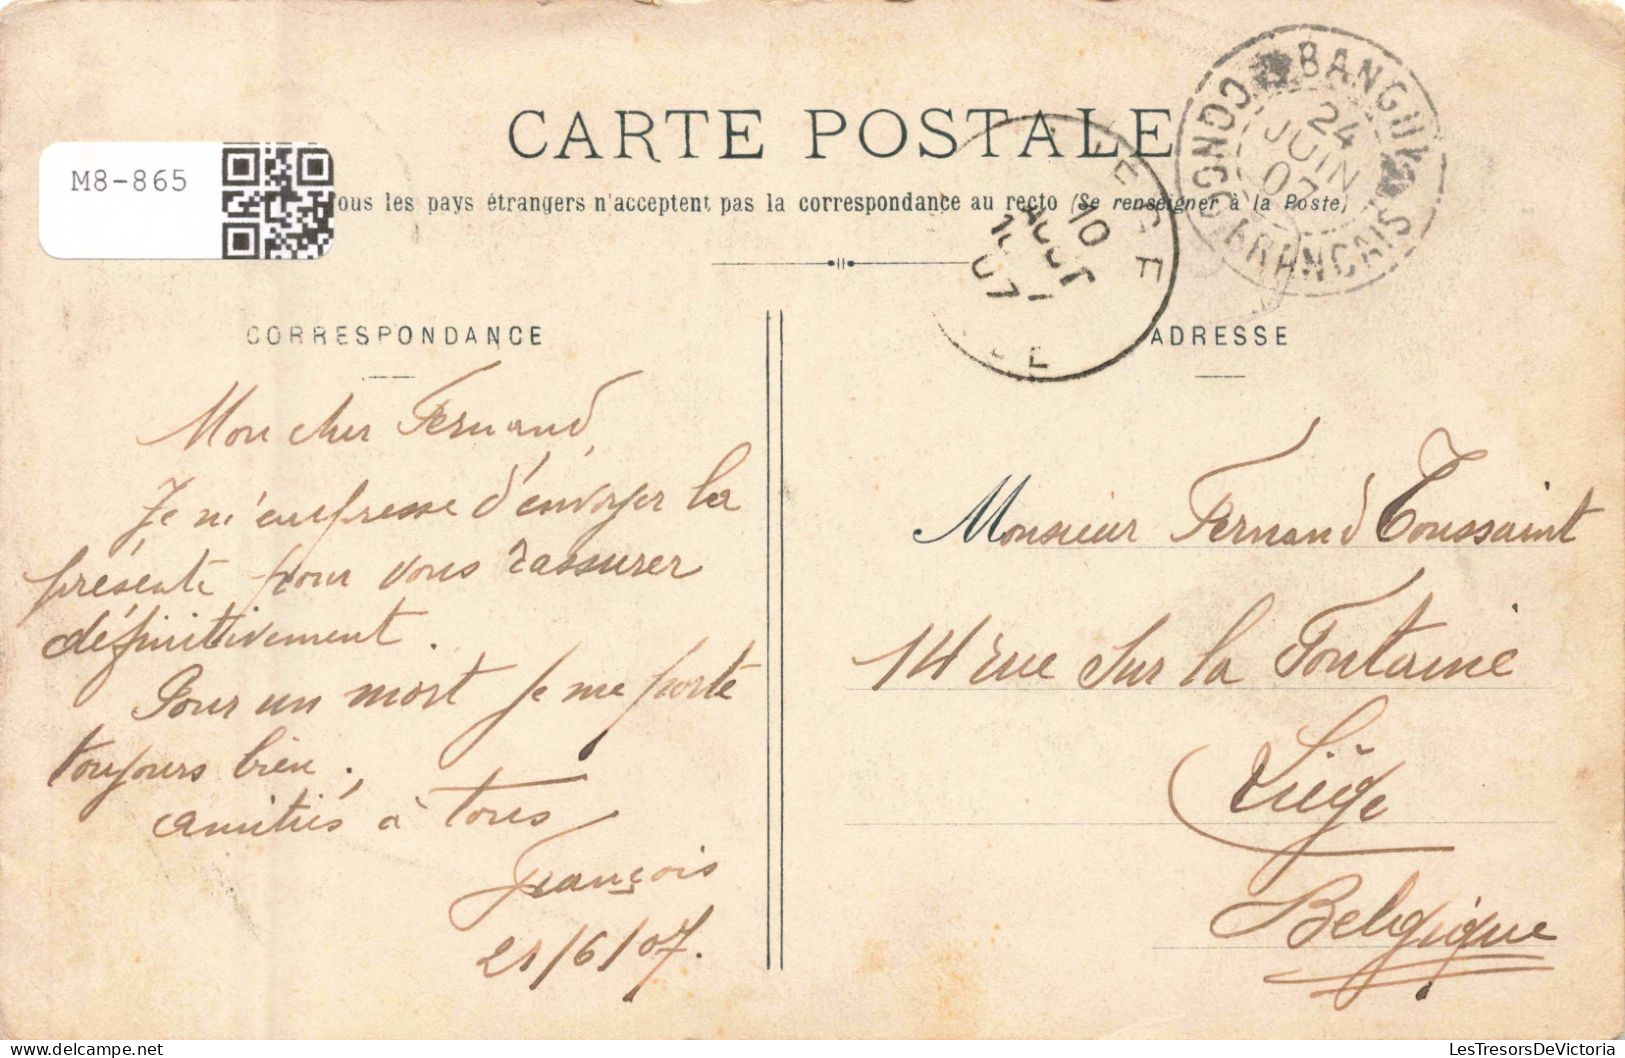 CARTE POSTALE
M8-865
ous les pays étrangers n'acceptent pas la correspondance au recto (Se renseigner à la Poste)
BANGUI
CONGO FRANCAIS
24
JUIN
07
10
AOUT
07
CORRESPONDANCE
ADRESSE
Mon cher Fernand,
Je m'empresse d'envoyer la
présente pour vous rassurer
définitivement.
Pour un mort je me porte
toujours bien.
amitiés à tous
François
21/6/07.
Monsieur Fernand Toussaint
14 rue sur la Fontaine
Liège
Belgique
LesTresorsDeVictoria